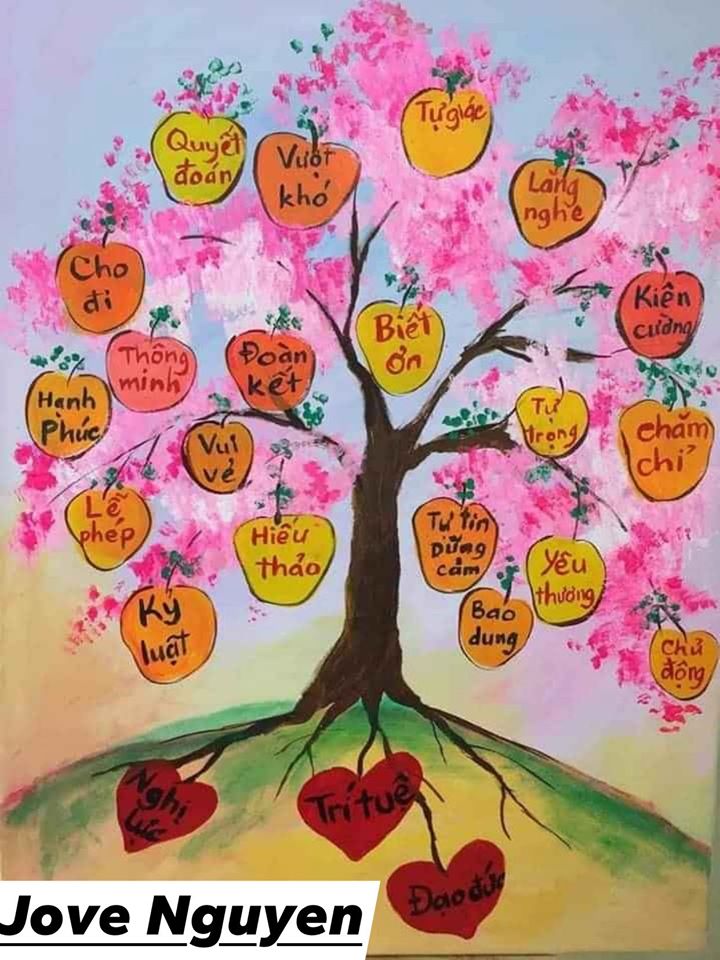 Tự giác
Quyết
đoán
Vượt
khó
Lắng
nghe
Cho
đi
Kiên
cường
Biết
ơn
Thông
minh
Đoàn
kết
Hạnh
Phúc
Tự
trọng
chăm
chỉ
Vui
vẻ
Lễ
phép
Hiếu
thảo
Tự tin
Dũng
cảm
Yêu
thương
Kỷ
luật
Bao
dung
Chủ
động
Nghị
lực
Trí tuệ
Đạo đức
Jove Nguyen